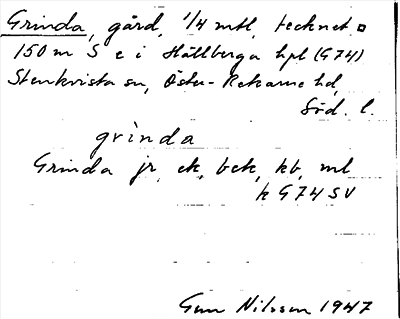 Grinda, gård, 1/4 mtl, tecknet ¤
150 m S e i Hällberga hpl (G74)
Stenkvista sn, Öster-Rekarne hd,
Söd. l.
grinda
Grinda jr, ek, bek, kb, ml
k G74 SV
Gun Nilsson 1947